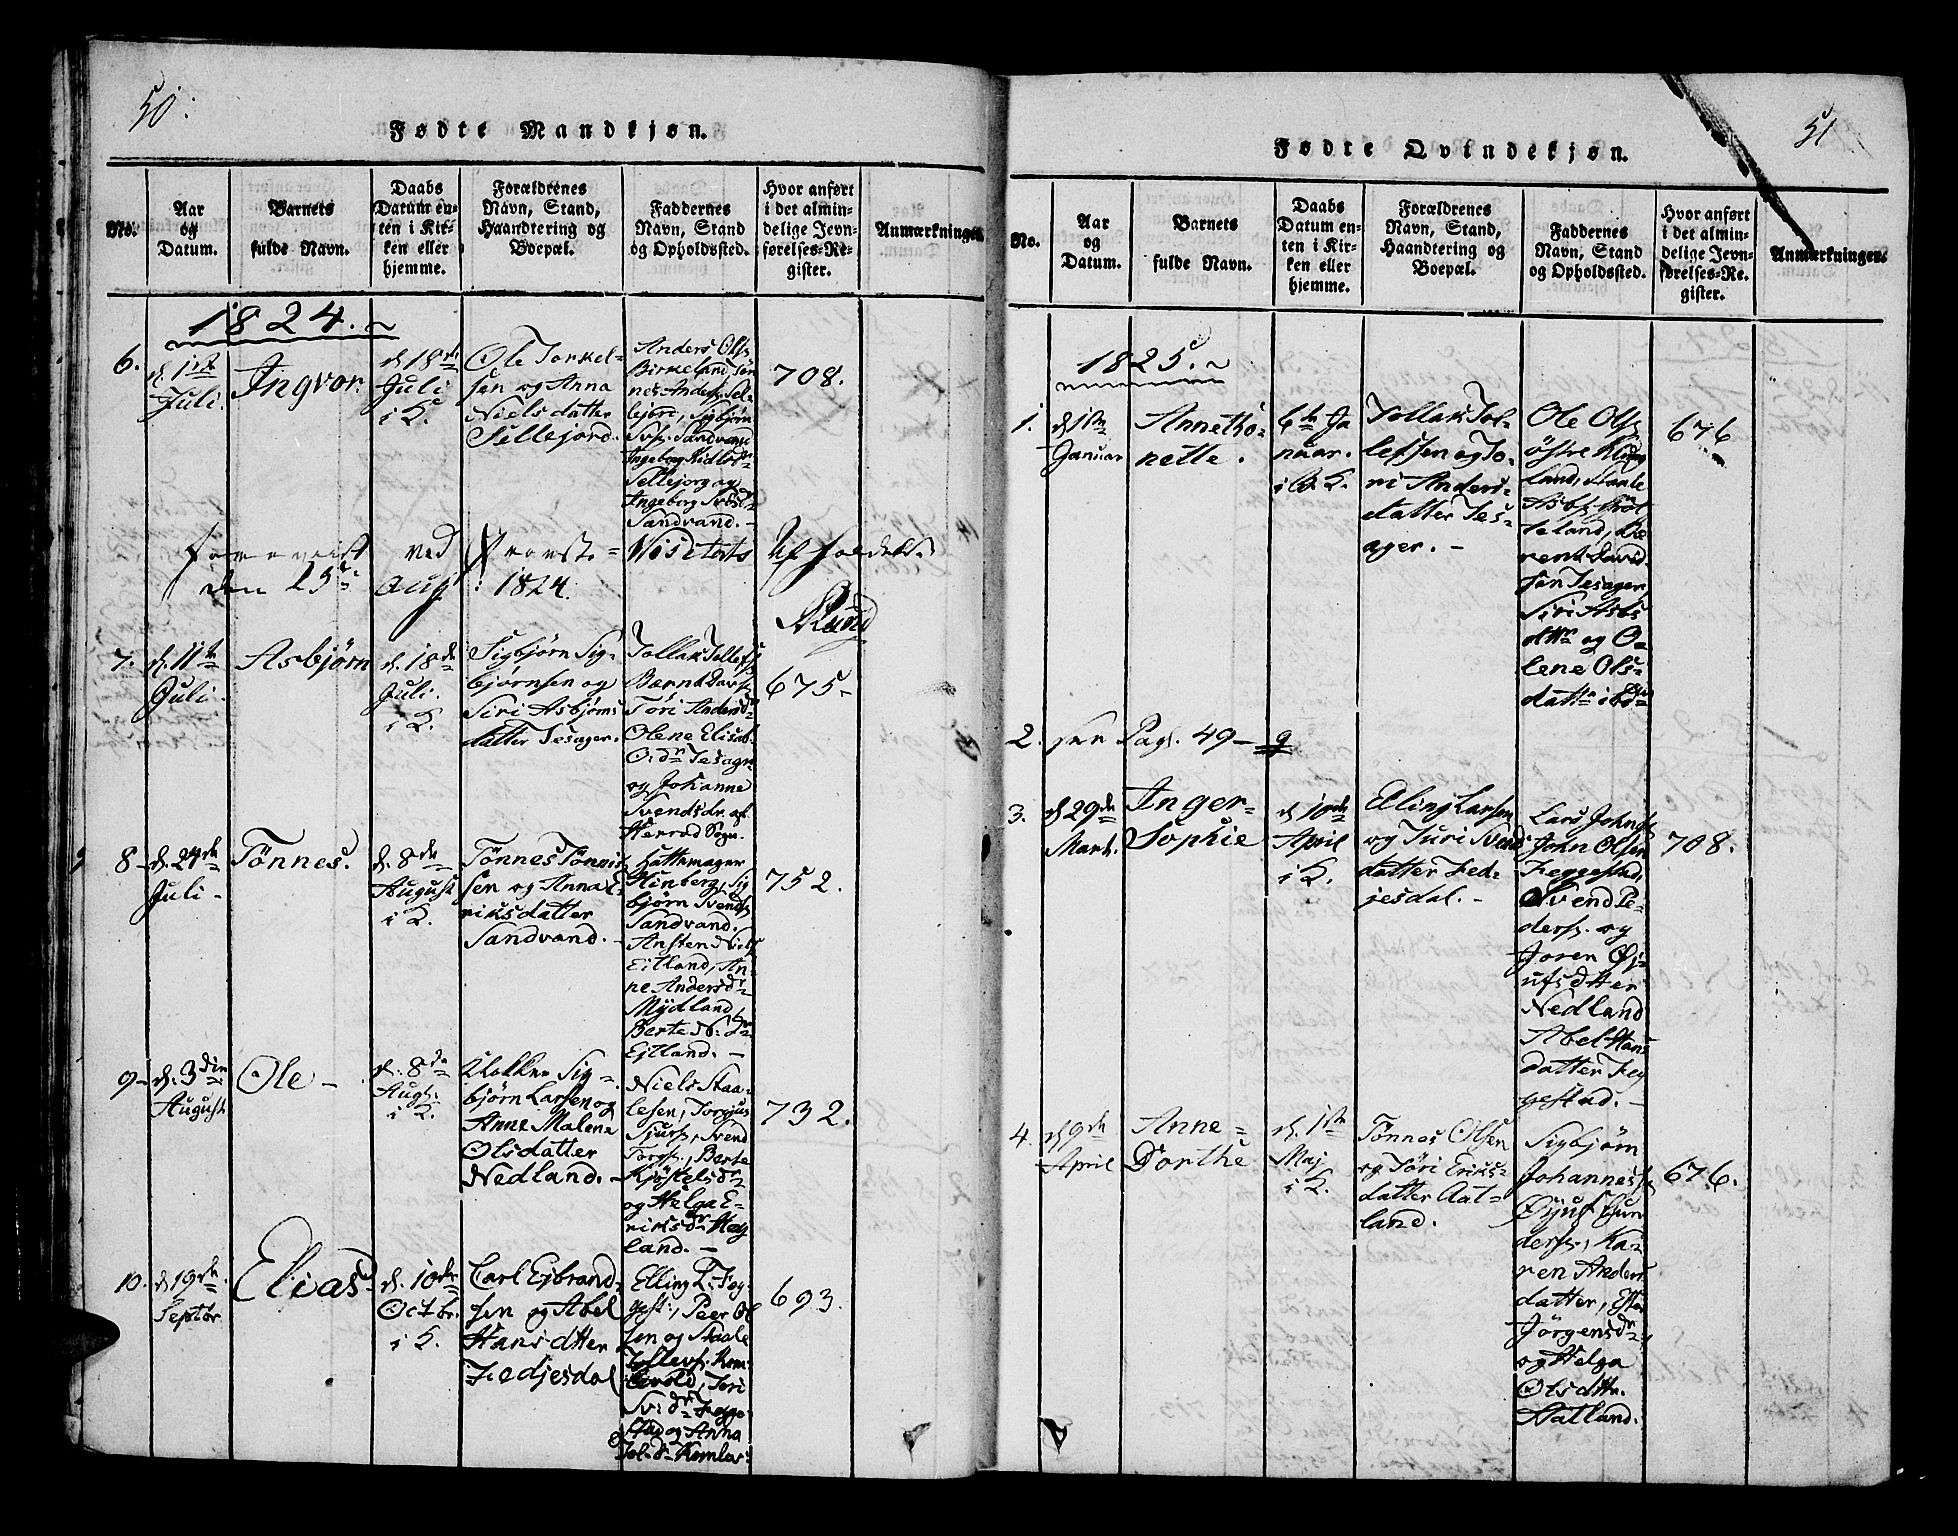 50.
Fødte Mandkjøn.
No.
Aar
og
Datum.
Barnets
fulde Navn.
Daabs
Datum en-
ten i Kir-
ken eller
hjemme.
Forældrenes
Navn, Stand,
Haandtering og
Boepæl.
Faddernes
Navn, Stand
og Opholdssted.
Hvor anført
i det almin-
delige Jevn-
førelses-Re-
gister.
Anmærkninger.
1824.
6.
d. 1ste
Juli.
Ingvor.
d. 18de
Juli
i K.
Ole Torkel-
sen og Anna
Nielsdatter
Sellejord.
Anders Ols.
Birkeland, Tøn
nes Anders. Sel-
lejord, Sigbjørn
Svs. Sandvand
Ingeborg
Sellejorg og
Ingeborg Svens-
Sandvand.
708.
foreviist ved Provste- Visitats
den 25 Aug 1824.
7.
d. 11te
Juli.
Asbjørn
d. 18de
Juli.
i K.
Sigbjørn Sig-
bjørnsen og
Siri Asbjørns
datter Tesager.
Tollak Tollefs.
Bærnt Davs.
Tori Andersd.
Olene Elisab.
O. dr Tesager
og Johanne
Svendsdr. af
Herrod Sogn.
675-
8-
d. 24de
Juli-
Tønnes.
d. 8de
August
i K.
Tønnes Tønnis
sen og Anna E-
riksdatter
Sandvand.-
Hattemager
Hinberg, Sig
bjørn Svends.
Sandvand.
Ansten Niels.
Eitland, An-
ne Andersdr
Mydland,
Berte N. dr
Ejtland.-
752.
9-
d. 3die
August
Ole-
d. 8de
Augs.
i K.
Klokker Sig-
bjørn Larsen og
Anne Malena
Olsdatter
Nedland.-
Niels Staa-
lesen, Torgjus
Sjurs., Svend
Torgs., Berte
Kjøstelsdr
og Helga E-
riksdr Høy
land.-
732.
10.
d. 19de
Septbr
Elias
d. 10de
Octbr.
i K.
Carl Ejbrand-
sen og Abel
Hansdtter
Fedjesdal
Elling L. Feg-
gest., Peer Ol
sen og Staale
Tollevs. Kom-
levold, Tori
Sv. dr Fegge-
stad og Anna
Tol. d. Komlev.
693.
51
Fødte Qvindekjøn.
No.
Aar
og
Datum.
Barnets
fulde Navn.
Daabs
Datum en-
ten i Kir-
ken eller
hjemme.
Forældrenes
Navn, Stand,
Haandtering og
Boepæl.
Faddernes
Navn, Stand
og Opholdssted.
Hvor anført
i det almin-
delige Jevn-
førelses-Re-
gister.
Anmærkninger.
1825.
1.
d 1ste
Januar
Annetho-
nette.
6te Ja
nuar.
i B. K.
Tollak Tol-
lefsen og To-
ri Anders-
datter Tes-
ager.-
Ole Ols.
østre
land, Staale
Asbs.
teland, Be
rent David
sen Tesager,
Siri Asbs
dttr og O-
lene Ols-
datter
676
2. see Pag. 49- 9
3.
d 29de
Marts.
Inger-
Sophie
d 10de
April
i K.
Elling Larsen
og Turi Svend
datter Fed-
jesdal.-
Lars Johns.
John Olsen
Feggestad,
Svend Pe-
ders. og
Joren Øj-
ufsdtter
Nedland
Abel Hans
datter Feg
gestad.-
708.
4.
d 9de
April
Anne-
Dorthe
d. 1ste
Maj
i K.
Tønnes Olsen
og Tori Eriks-
datter Aat-
land.
Sigbjørn
Johanness.
Øjuf Gun
ders., Ka-
ren Anders
datter,
Jørgensdr
og Helga
Olsdttr.
Aatland.
676.